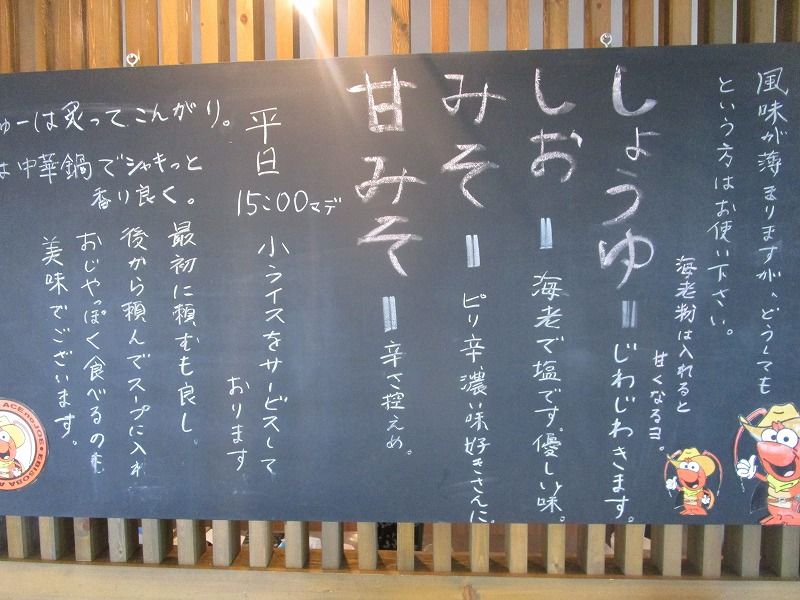 風味が薄まりますが、どうしても
という方はお使い下さい。
海老粉は入れると
甘くなるヨ。
しょうゆ＝じわじわきます。
しお＝海老で塩です。優しい味。
みそ＝ピリ辛、濃い味好きさんに。
甘みそ＝辛さ控えめ。
平日
15:00マデ
小ライスをサービスして
おります
最初に頼むも良し。
後から頼んでスープに入れ
おじやっぽく食べるのも
美味でございます。
ゅーは炙ってこんがり。
は中華鍋でシャキっと
香り良く。